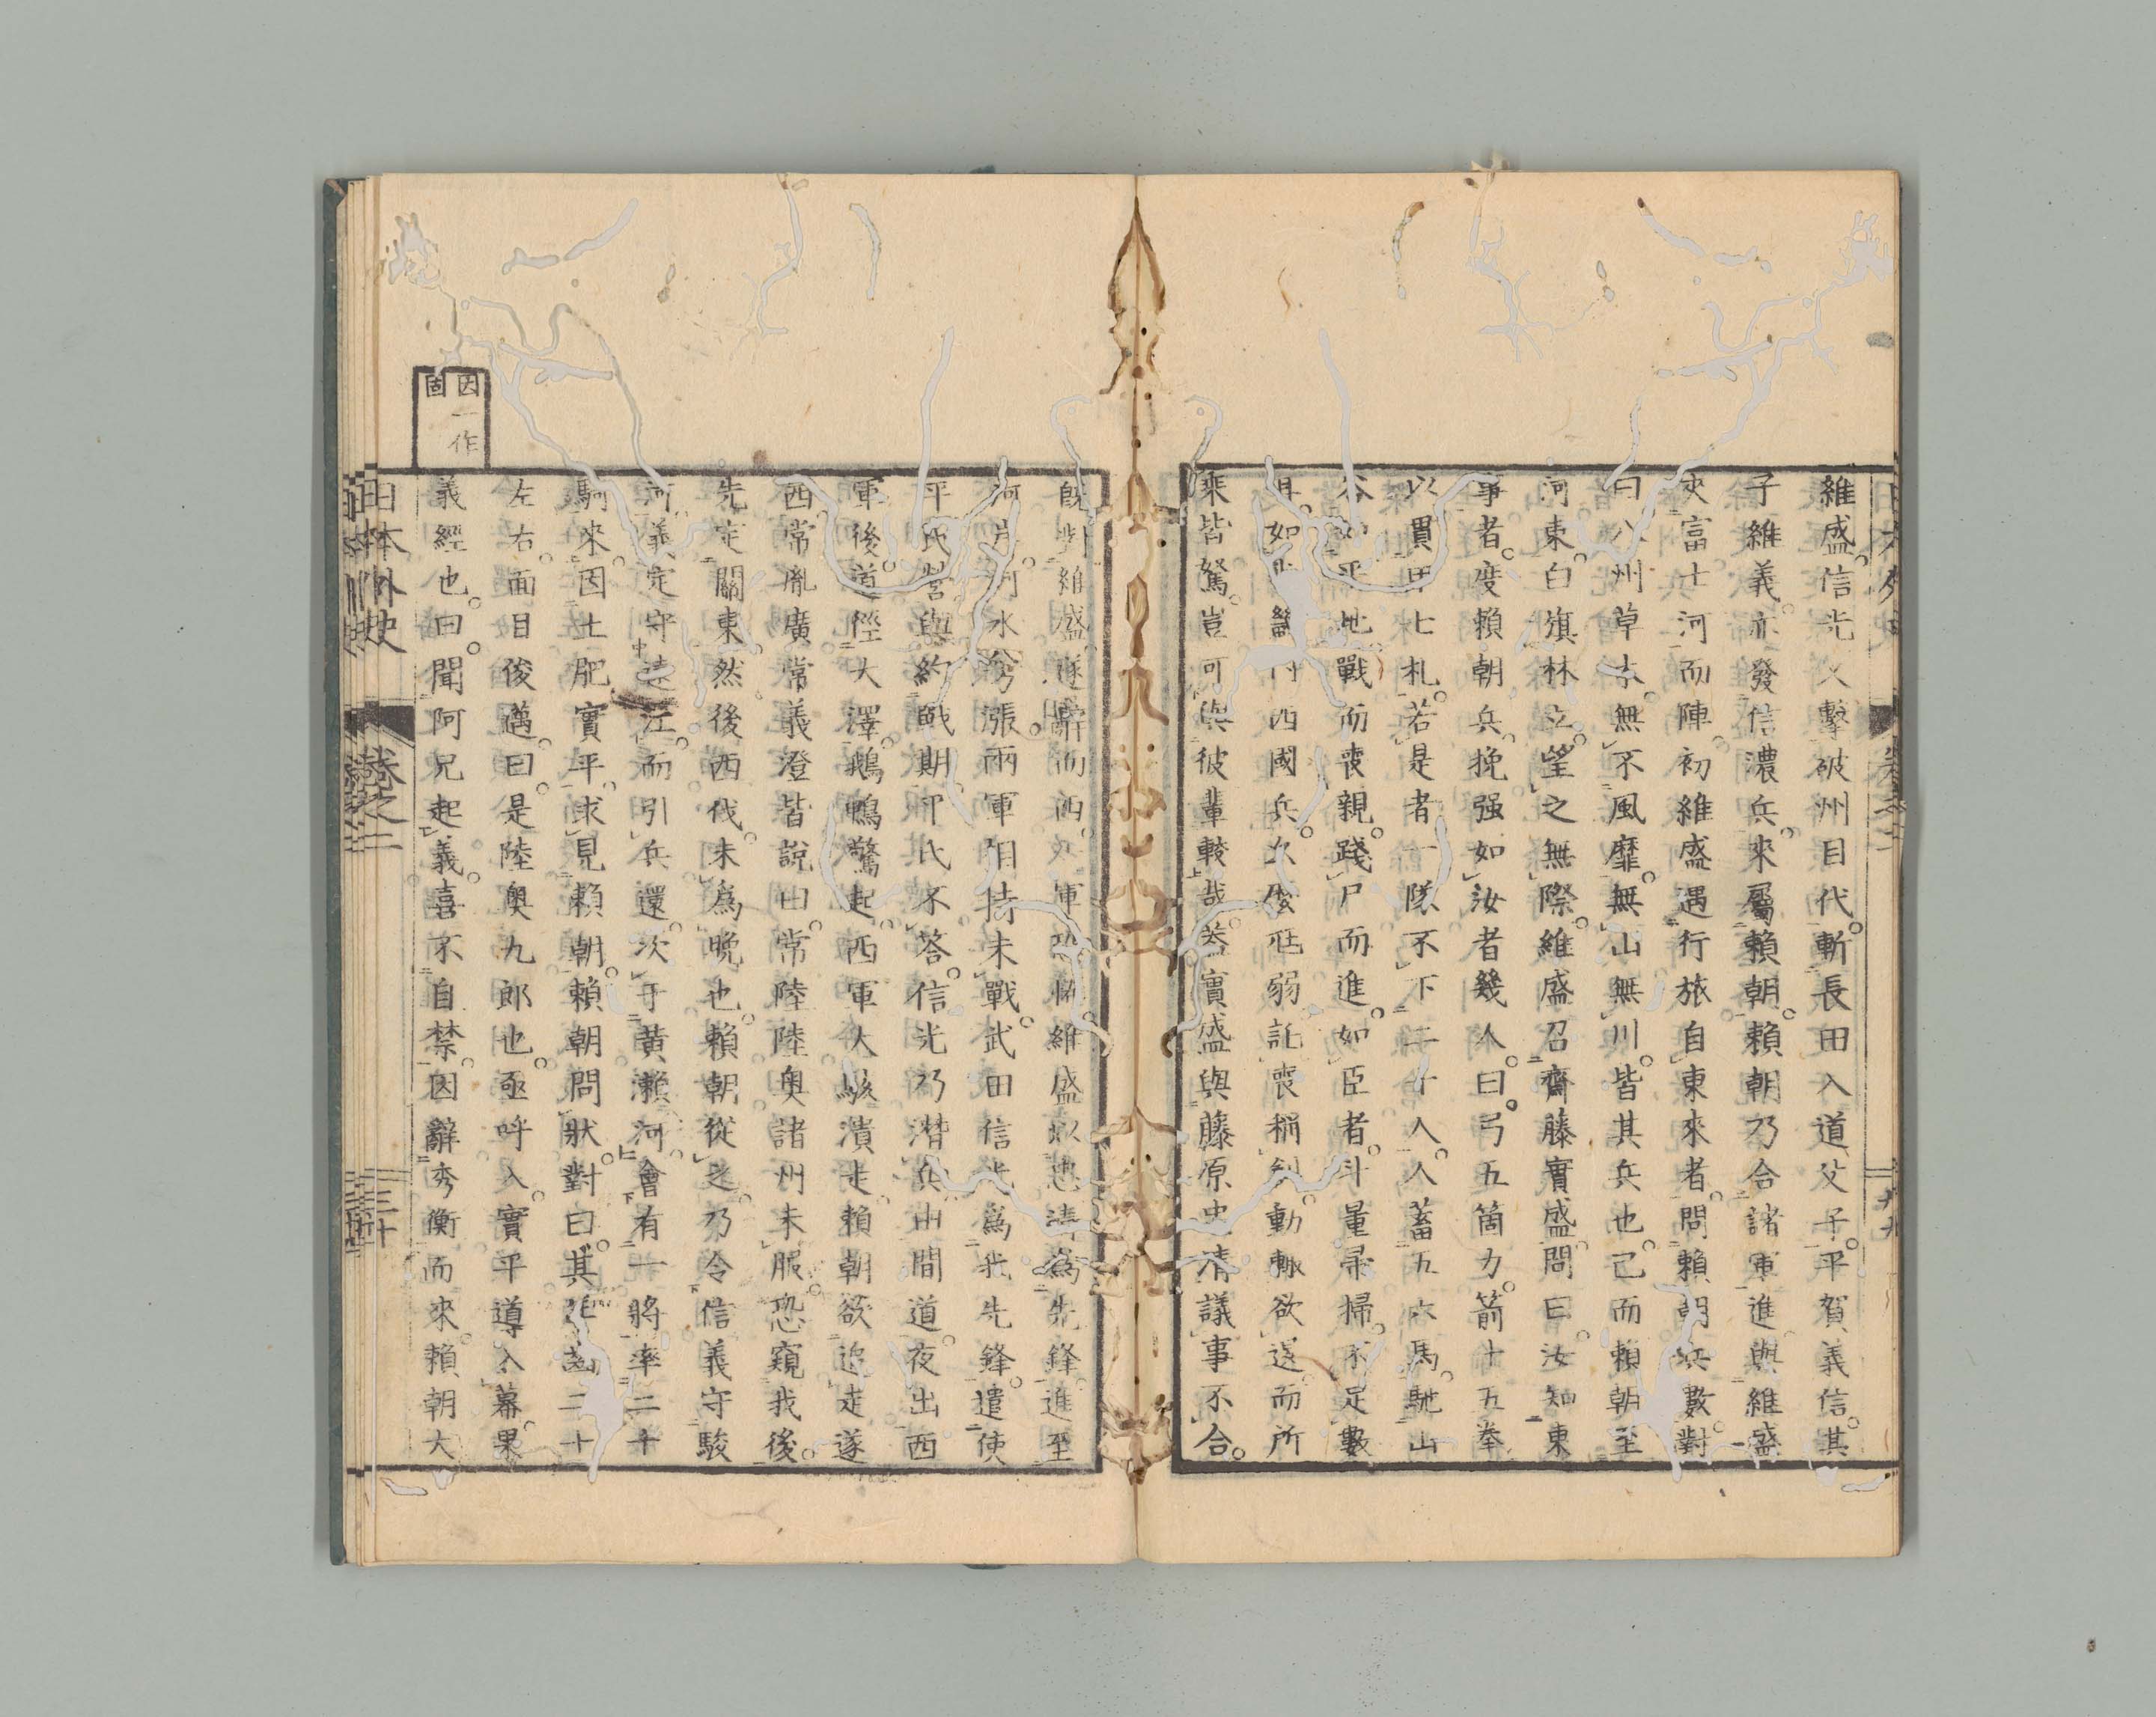 維盛信光又擊破州目代斬長田入道父子平賀義信其
子維義亦發信濃兵來屬賴朝賴朝乃合諸軍進與維盛
夾富士河而陣初維盛遇行旅自東來者問賴朝兵數對
曰八州草木無不風靡無山無川皆其兵也已而賴朝至
河東白旗林立望之無際維盛召齋藤實盛問曰汝知東
事者度賴朝兵挽强如汝者幾人曰弓五箇力箭十五拳
以貫甲七札若是者一隊不下二十人人蓄五六馬馳山
谷如平地戰而喪親踐尸而進如臣者斗量帚掃不足數
耳如畿內西國兵久疲尫弱託喪稱創動輒欲還而所
乘皆駑豈可與彼輩較哉葢實盛與藤原忠清議事不合
旣對維盛遂辭而西又軍恐懼維盛以忠清爲先鋒進至
河岸河水方漲兩軍相持未戰武田信光爲我先鋒遣使
平氏營與約戰期平氏不答信光乃潛兵山間道夜出西
軍後道徑大澤鵝鴨驚起西軍大駭潰走賴朝欲追走遂
西常胤廣常義澄皆說曰常陸陸奥諸州未服恐窺我後
先定關東然後西伐未爲晚也賴朝從之乃令信義守駿
河義定守遠江而引兵還次于黄瀨河會有一將率二十
騎來因土肥實平求見賴朝賴朝問狀對曰其年齒二十
左右面目俊邁曰是陸奥九郎也亟呼入實平導入幕果
義經也曰聞阿兄起義喜不自禁因辭秀衡而來賴朝大
因一作
固
日本外史
卷之二
三十